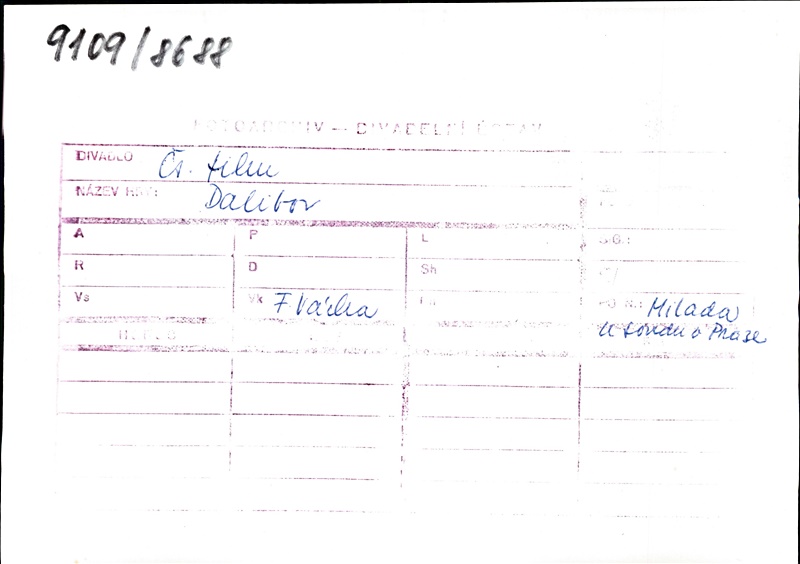 9109/8688
FOTOARCHIV — DIVADELNÍ ÚSTAV
DIVADLO Čs. film
NÁZEV HRY: Dalibor
A P L
R D Sh
Vs Vk F. Vácha
Milada
u soudu v Praze